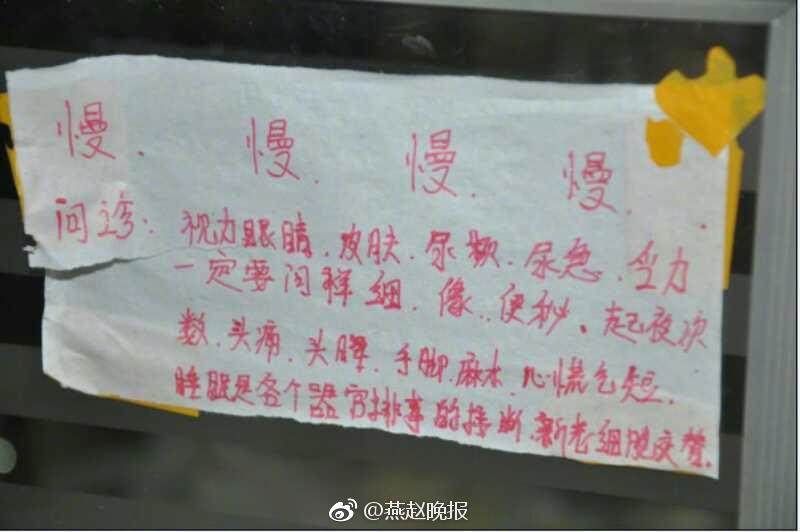 慢、慢、慢、慢、
问诱:视力眼睛、皮肤、尿频、尿急、全力
一定要问样细、像、便秘、起夜次
数、头痛、头晖、手脚麻木、心慌气短、
睡眠是各个器官排毒的接断、新老细胞交替、
@燕赵晚报